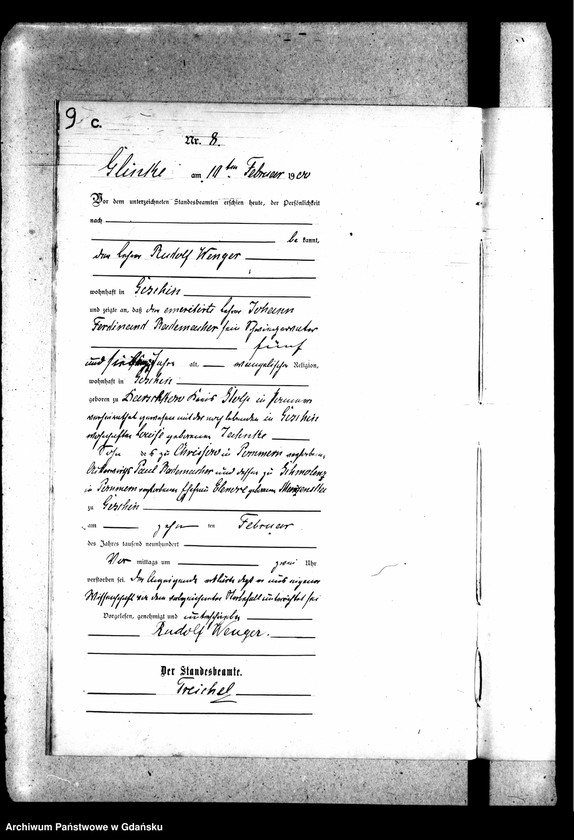 9 C.
Nr. 8.
Glinke am 10ten Februar 1900
Vor dem unterzeichneten Standesbeamten erschien heute, der Persönlichkeit
nach
be kannt,
der Lehrer Rudolf Wenger
wohnhaft in Gischin
und zeigte an, daß der emeritirte Lehrer Johann
Ferdinand Rademacher sein Schwiegervater
fünf
und siebzig Jahre alt, evangelischer Religion,
wohnhaft in Gischin
geboren zu Kreis Stolp in Pommern
verheirathet gewesen mit der noch lebenden in Gischin
wohnhaften Luise geborenen
Sohn des zu in Pommern verstorbenen
Paul Rademacher und dessen zu
in Pommern verstorbenen Ehefrau geborenen
zu Gischin
am zehn ten Februar
des Jahres tausend neunhundert
Vor mittags um zwei Uhr
verstorben sei. Der Anzeigende erklärte daß er aus eigener
Wissenschaft von dem vorbezeichneten Sterbefall unterrichtet sei
Vorgelesen, genehmigt und unterschrieben
Rudolf Wenger.
Der Standesbeamte.
Treichel
Archiwum Państwowe w Gdańsku